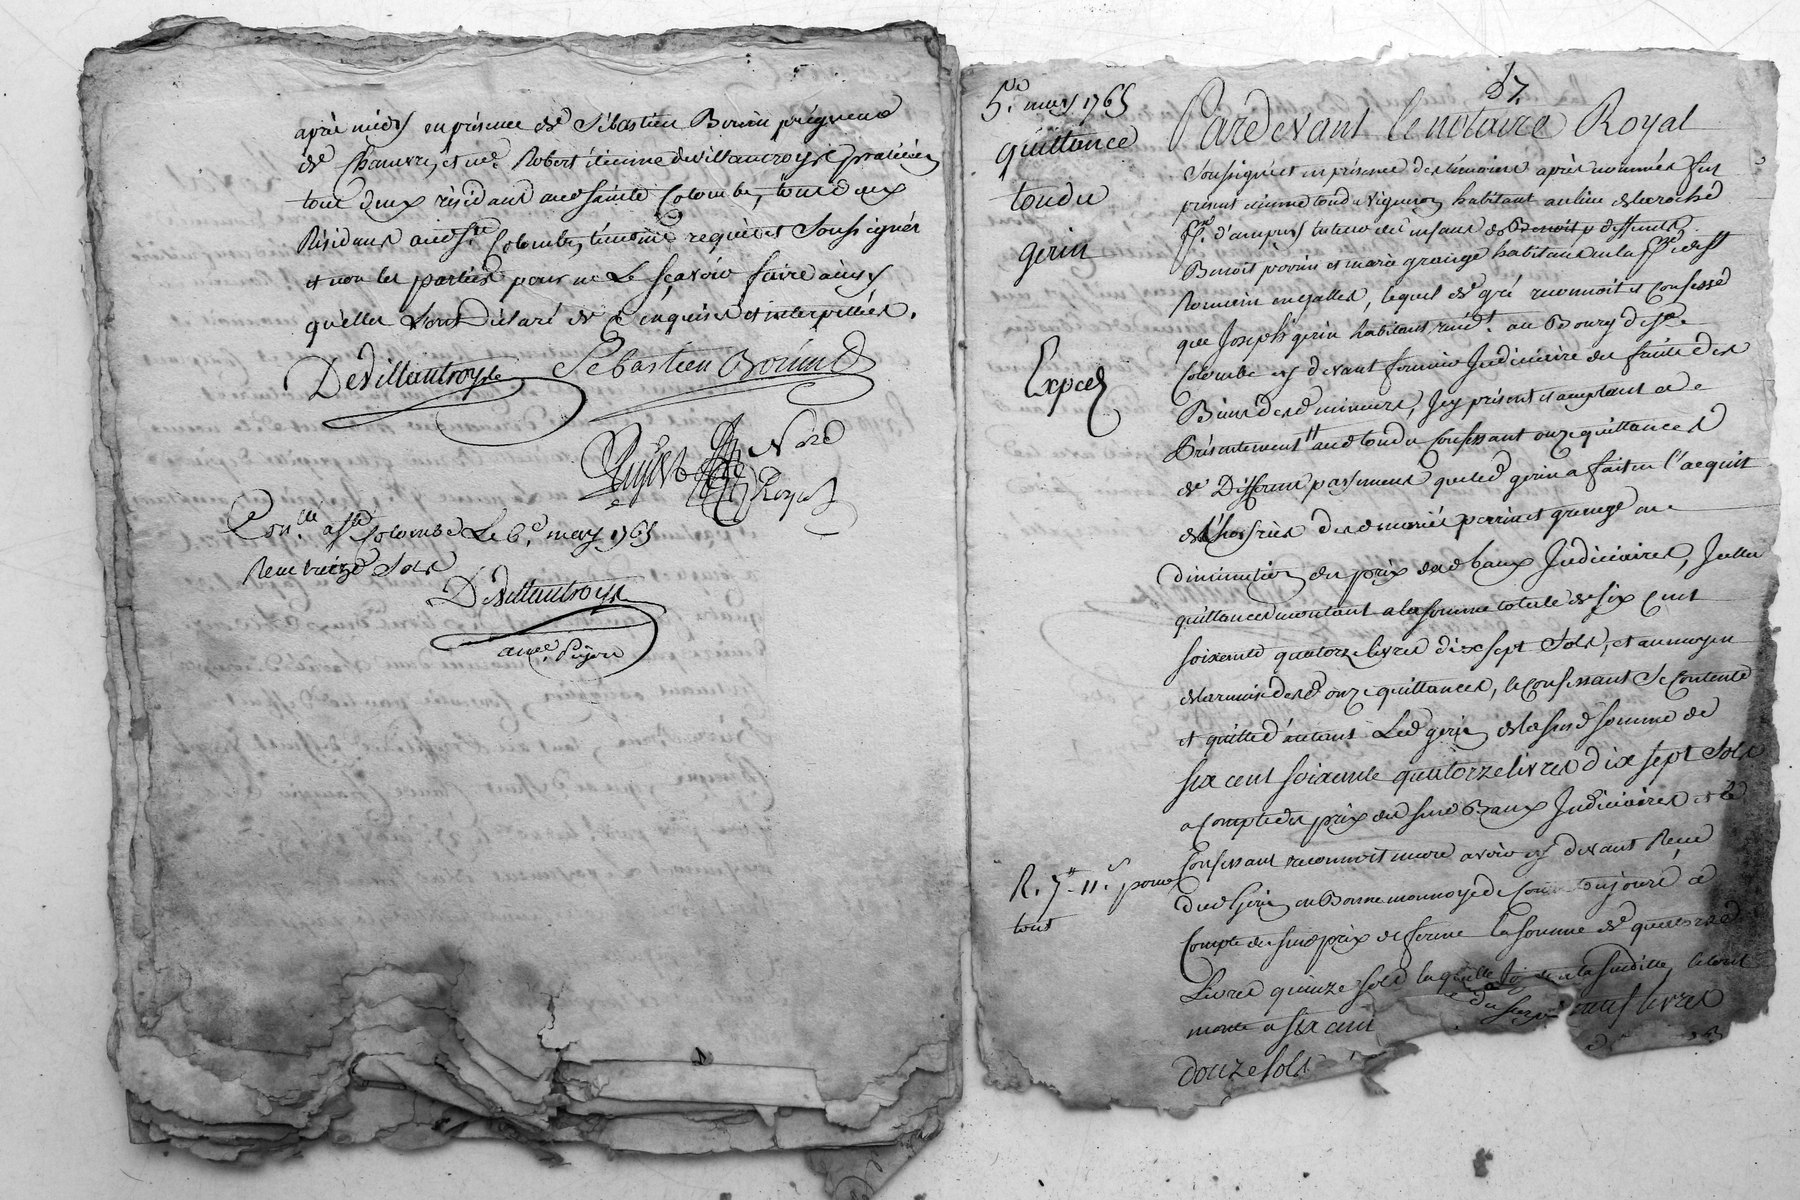 après midy en présence de Sébastien Bonin
de Chanvre, et me. Robert étienne devillantroys praticien
tous deux résidant aud sainte Colombe, tous deux
Résidant aud Ste Colombe, témoins requis et Soussignés
et non les parties pour ne le sçavoir faire ainsy
qu'elles sont déclaré de ce enquises et interpellées.
DeVillantroys Sebastien
Nore
Royal
Con.lle a Ste Colombe Le 6.e may 1765
Receu treize Sols
DeVillantroys
37.
5.e may 1765
quittance
tondu
gerin
Exped
Pardevant le notaire Royal
Soussigné et en présence des témoins après nommés fut
présent étienne tondu vigneron habitant au lieu de la roche
psse. d'ampuis tuteur des enfans de Benoit deffunts
Benoit perrin et marie grange habitans en la psse de St
Romain en galles, lequel de gré reconnoit et confesse
que Joseph gerin habitant au Bourg de Ste.
Colombe cy devant fermier Judiciaire des fruits des
Biens desd mineurs, Icy présent et acceptant a
présentement aud tondu confessant onze quittances
de Differans payemens que led gerin a fait en l'acquit
de l'hoirie desd mariés perrin et grange en
diminution du prix desd baux Judiciaires, Icelles
quittances montant a la somme totale de six cent
soixante quatorze livres dix sept Sols, et au moyen
de la remise desd onze quittances, le confessant Se contente
et quitte d'autant Led gerin de lad susd somme de
six cent soixante quatorze livres dix sept Sols
a compte du prix des susd Baux Judiciaires et le
Confessant reconnoit encore avoir cy devant Receu
dud Gerin en Bonne monnoye de Cours toujours a
Compte du susd prix de ferme la somme de
Livres quinze sols laquelle la susditte, le tout
monte a six cent neuf livres
douze sols
R. 7tt 11s pour
tout